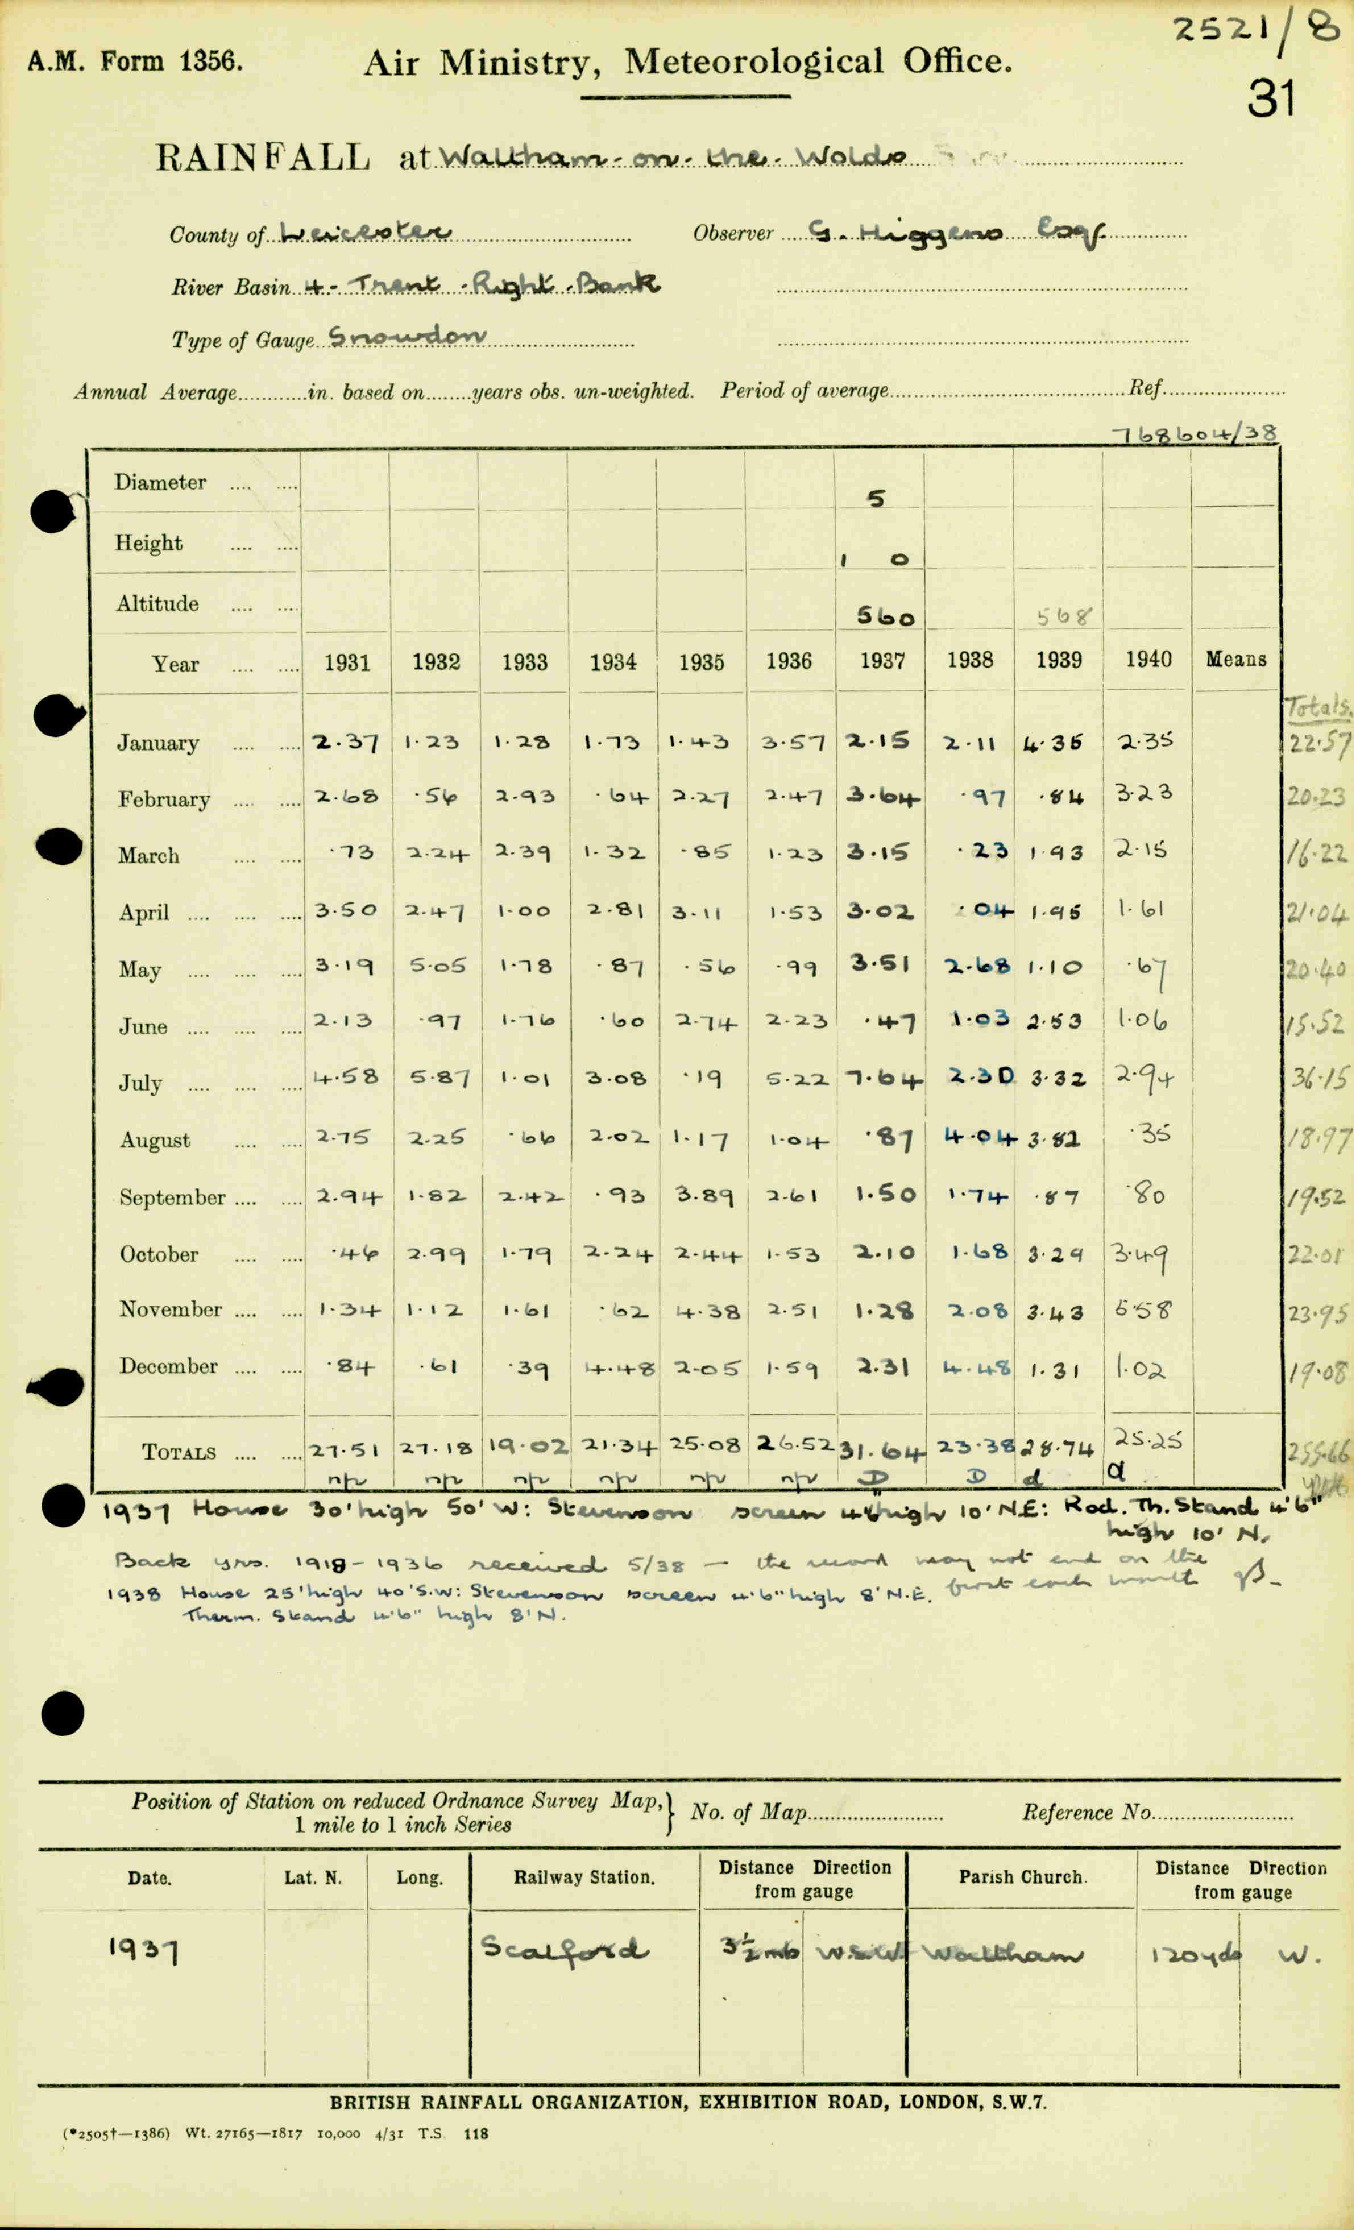 2521/8
A.M. Form 1356. Air Ministry, Meteorological Office.
31
RAINFALL at Waltham-on-the-Wolds
County of Leicester Observer G. Higgens Esq.
River Basin 4- Trent Right Bank
Type of Gauge Snowdon
Annual Average in. based on years obs. un-weighted. Period of average Ref.
768604/38
Diameter 5
Height 1 0
Altitude 560 568
Year 1931 1932 1933 1934 1935 1936 1937 1938 1939 1940 Means
Totals.
January 2.37 1.23 1.28 1.73 1.43 3.57 2.15 2.11 4.35 2.35 22.57
February 2.68 .56 2.93 .64 2.27 2.47 3.64 .97 .84 3.23 20.23
March .73 2.24 2.39 1.32 .85 1.23 3.15 .23 1.93 2.15 16.22
April 3.50 2.47 1.00 2.81 3.11 1.53 3.02 .04 1.95 1.61 21.04
May 3.19 5.05 1.78 .87 .56 .99 3.51 2.68 1.10 .67 20.40
June 2.13 .97 1.76 .60 2.74 2.23 .47 1.03 2.53 1.06 15.52
July 4.58 5.87 1.01 3.08 .19 5.22 7.64 2.30 3.32 2.94 36.15
August 2.75 2.25 .66 2.02 1.17 1.04 .87 4.04 3.82 .35 18.97
September 2.94 1.82 2.42 .93 3.89 2.61 1.50 1.74 .87 .80 19.52
October .46 2.99 1.79 2.24 2.44 1.53 2.10 1.68 3.29 3.49 22.01
November 1.34 1.12 1.61 .62 4.38 2.51 1.28 2.08 3.43 5.58 23.95
December .84 .61 .39 4.48 2.05 1.59 2.31 4.48 1.31 1.02 19.08
TOTALS 27.51 27.18 19.02 21.34 25.08 26.52 31.64 23.38 28.74 25.25 255.66
np np np np np np D D d d
1937 House 30' high 50' W: Stevenson screen 4'6" high 10' N.E: Rad. Th. Stand 4'6"
high 10' N.
Back yrs. 1918-1936 received 5/38 — the record may not end on the
first each month
1938 House 25' high 40' S.W: Stevenson screen 4'6" high 8' N.E.
Therm. Stand 4'6" high 8' N.
Position of Station on reduced Ordnance Survey Map, } No. of Map Reference No.
1 mile to 1 inch Series
Date. Lat. N. Long. Railway Station. Distance Direction from gauge Parish Church. Distance Direction from gauge
1937 Scalford 3½ mls W.S.W. Waltham 120 yds W.
BRITISH RAINFALL ORGANIZATION, EXHIBITION ROAD, LONDON, S.W.7.
(*2505†—1386) Wt. 27165—1817 10,000 4/31 T.S. 118